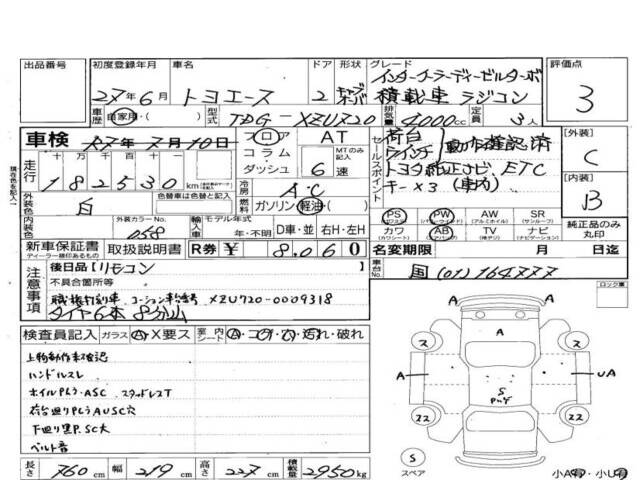 出品番号 初度登録年月 車名 ドア 形状 グレード 評価点
27年6月 トヨエース 2 インタークーラーディーゼルターボ
積載車 ラジコン 3
車歴 自家用・( ) 型式 TDG-XZU720 排気量 4000cc 定員 3人
車検 27年7月10日 フロア AT
コラム MTのみ記入
ダッシュ 6速
セールスポイント 荷台 ウインチ 動作確認済
トヨタ純正ナビ、ETC
キー×3(車内)
[外装] C
[内装] B
走行 十万 万 千 百 十
182530km
冷房 AC
外装色 白 燃料 ガソリン 軽油・( )
色替車は色替前の色( )
内装色 外装カラーNo. 058 輸入車 モデル年式 年・不明 D車・並 右H・左H
PS パワーウィンドウ PW AW (アルミホイル) SR (サンルーフ)
カワ (カワシート) AB TV (地デジ) ナビ (ナビゲーション)
純正品のみ丸印
新車保証書 ディーラー捺印あるもの 取扱説明書 R券 ¥ 8,060
名変期限 月 日迄
車台No. 国(01)164777
注意事項 後日品【リモコン 】
不具合箇所等
職権打刻車 コーション車台番号 XZU720-0009318
タイヤ6本 8分山
ロック車
検査員記入 ガラス A・X要ス 室内 シート A・コゲ・穴・汚れ・破れ
上物動作未確認
ハンドルスレ
ホイルサビ・ASC スタッドレスT
荷台廻りサビAUSC穴
下廻り塗P.SC大
ベルト音
A
2 2
A A UA
S
22 22
S
スペア
小A有・小U有
長さ 760cm 幅 219cm 高さ 227cm 積載量 2950kg